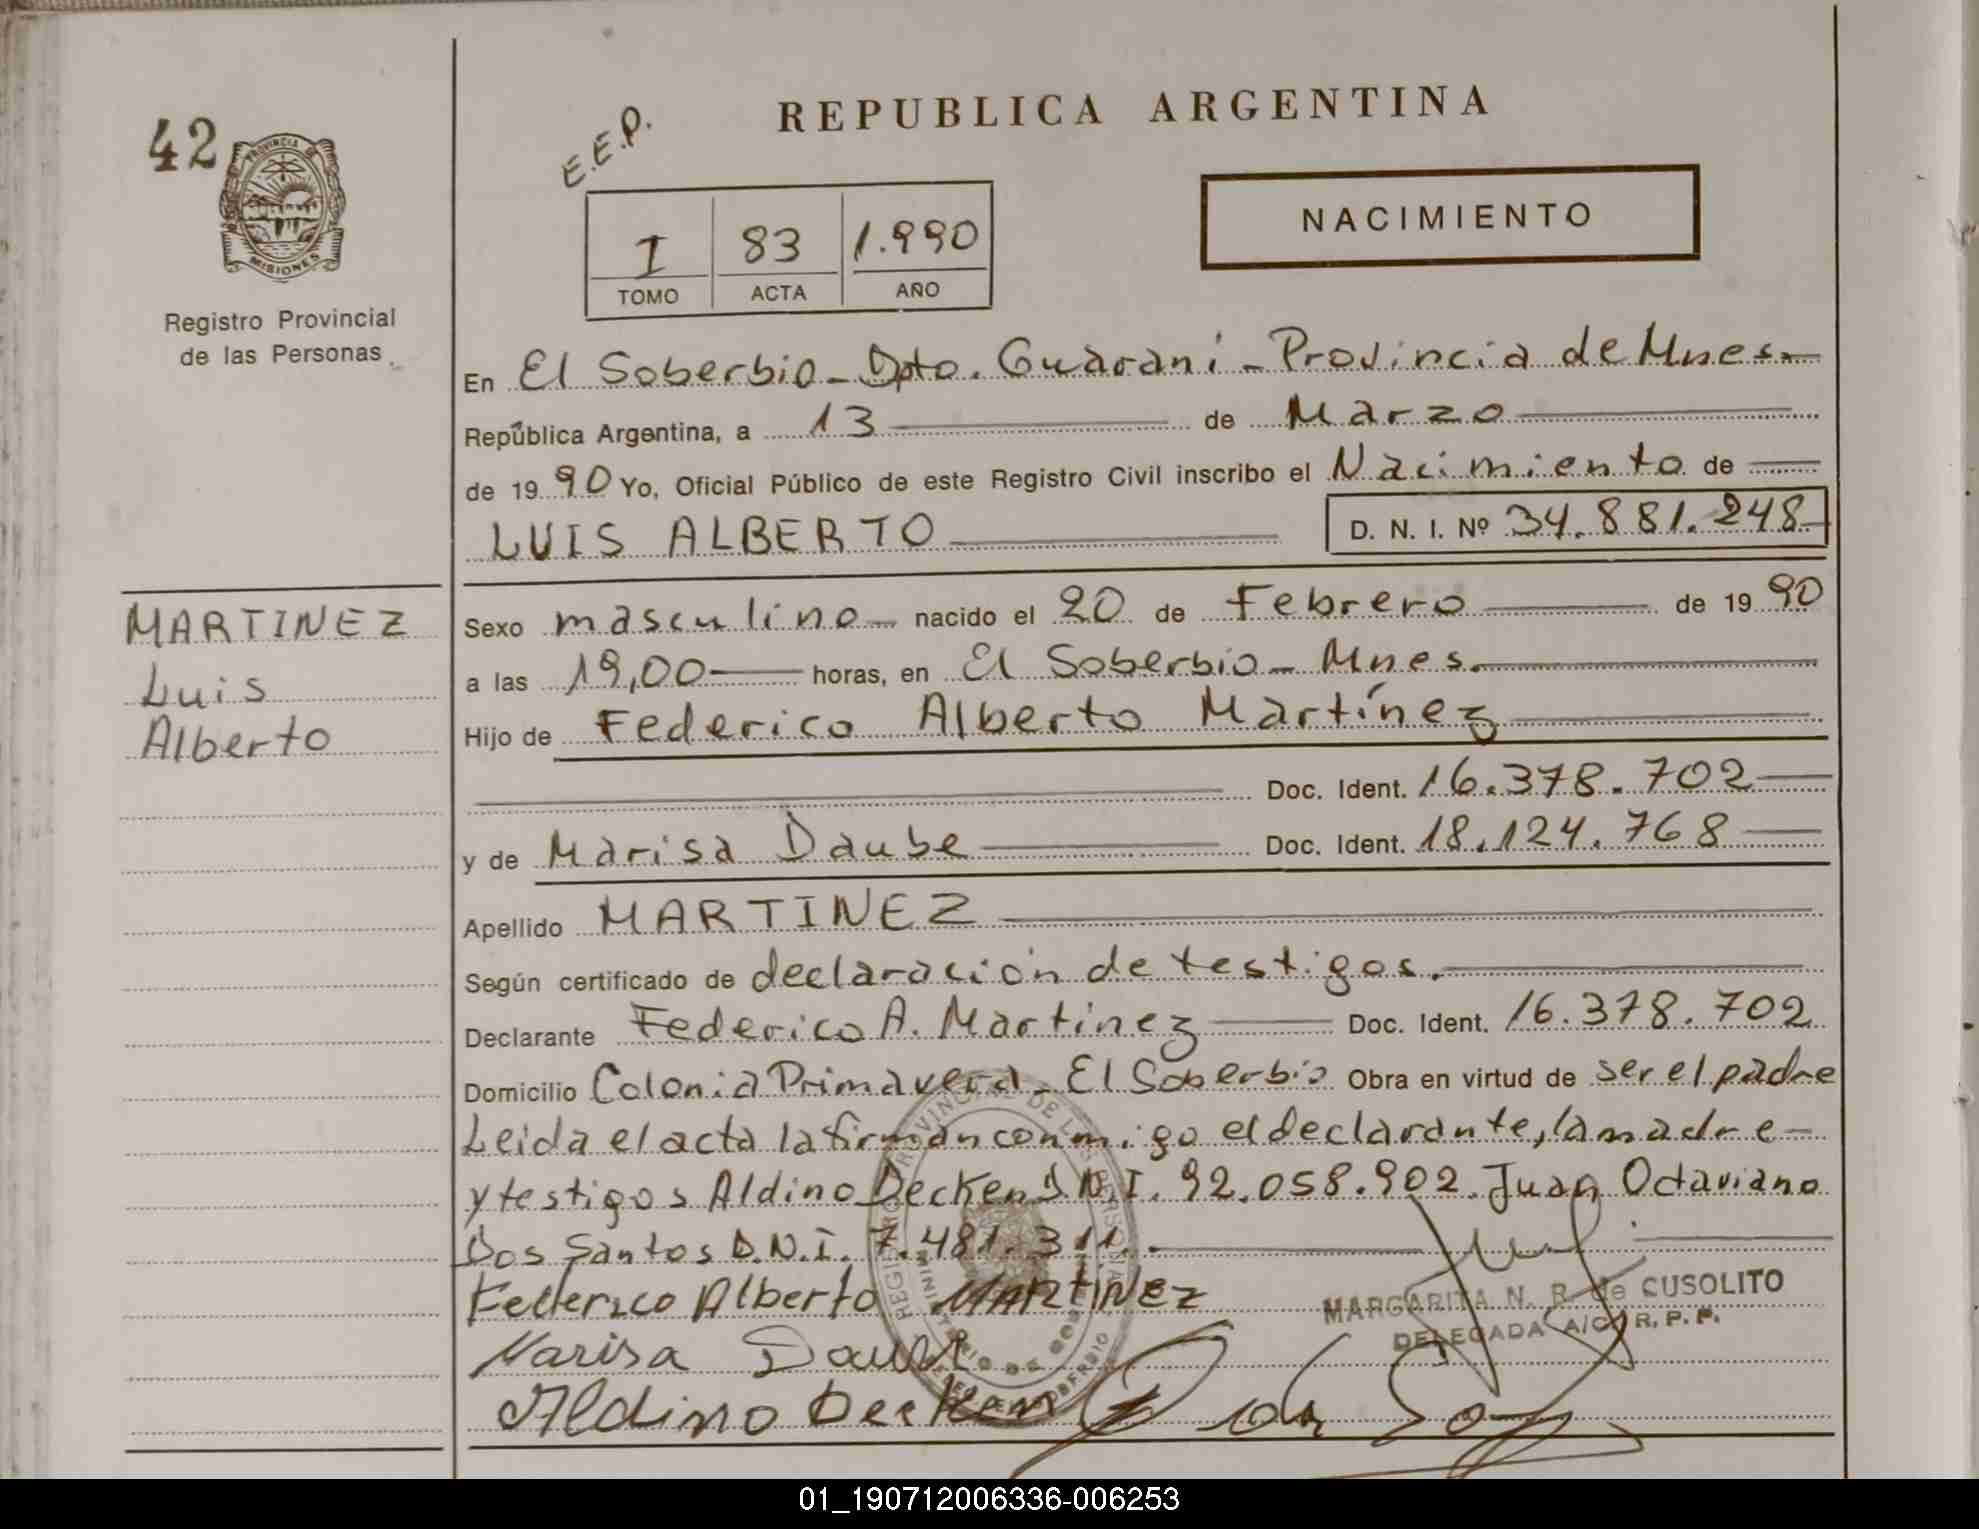 42
PROVINCIA DE
MISIONES
Registro Provincial
de las Personas
E.E.P.
REPUBLICA ARGENTINA
I 83 1.990
TOMO ACTA AÑO
NACIMIENTO
En El Soberbio - Dpto. Guarani - Provincia de Mnes.
República Argentina, a 13 de Marzo
de 1990 Yo, Oficial Público de este Registro Civil inscribo el Nacimiento de
LUIS ALBERTO D. N. I. Nº 34.881.248
MARTINEZ
Luis
Alberto
Sexo masculino nacido el 20 de Febrero de 1990
a las 19,00 horas, en El Soberbio - Mnes.
Hijo de Federico Alberto Martínez
Doc. Ident. 16.378.702
y de Marisa Daube Doc. Ident. 18.124.768
Apellido MARTINEZ
Según certificado de declaración de testigos.
Declarante Federico A. Martínez Doc. Ident. 16.378.702
Domicilio Colonia Primavera - El Soberbio Obra en virtud de ser el padre
Leida el acta la firman conmigo el declarante, la madre
y testigos Aldino Decken D.N.I. 92.058.902. Juan Octaviano
Dos Santos D.N.I. 7.481.311.
Federico Alberto MARTINEZ
MARGARITA N. R. de CUSOLITO
DELEGADA A/C R. P. P.
Marisa Daube
Aldino Decken
01_190712006336-006253